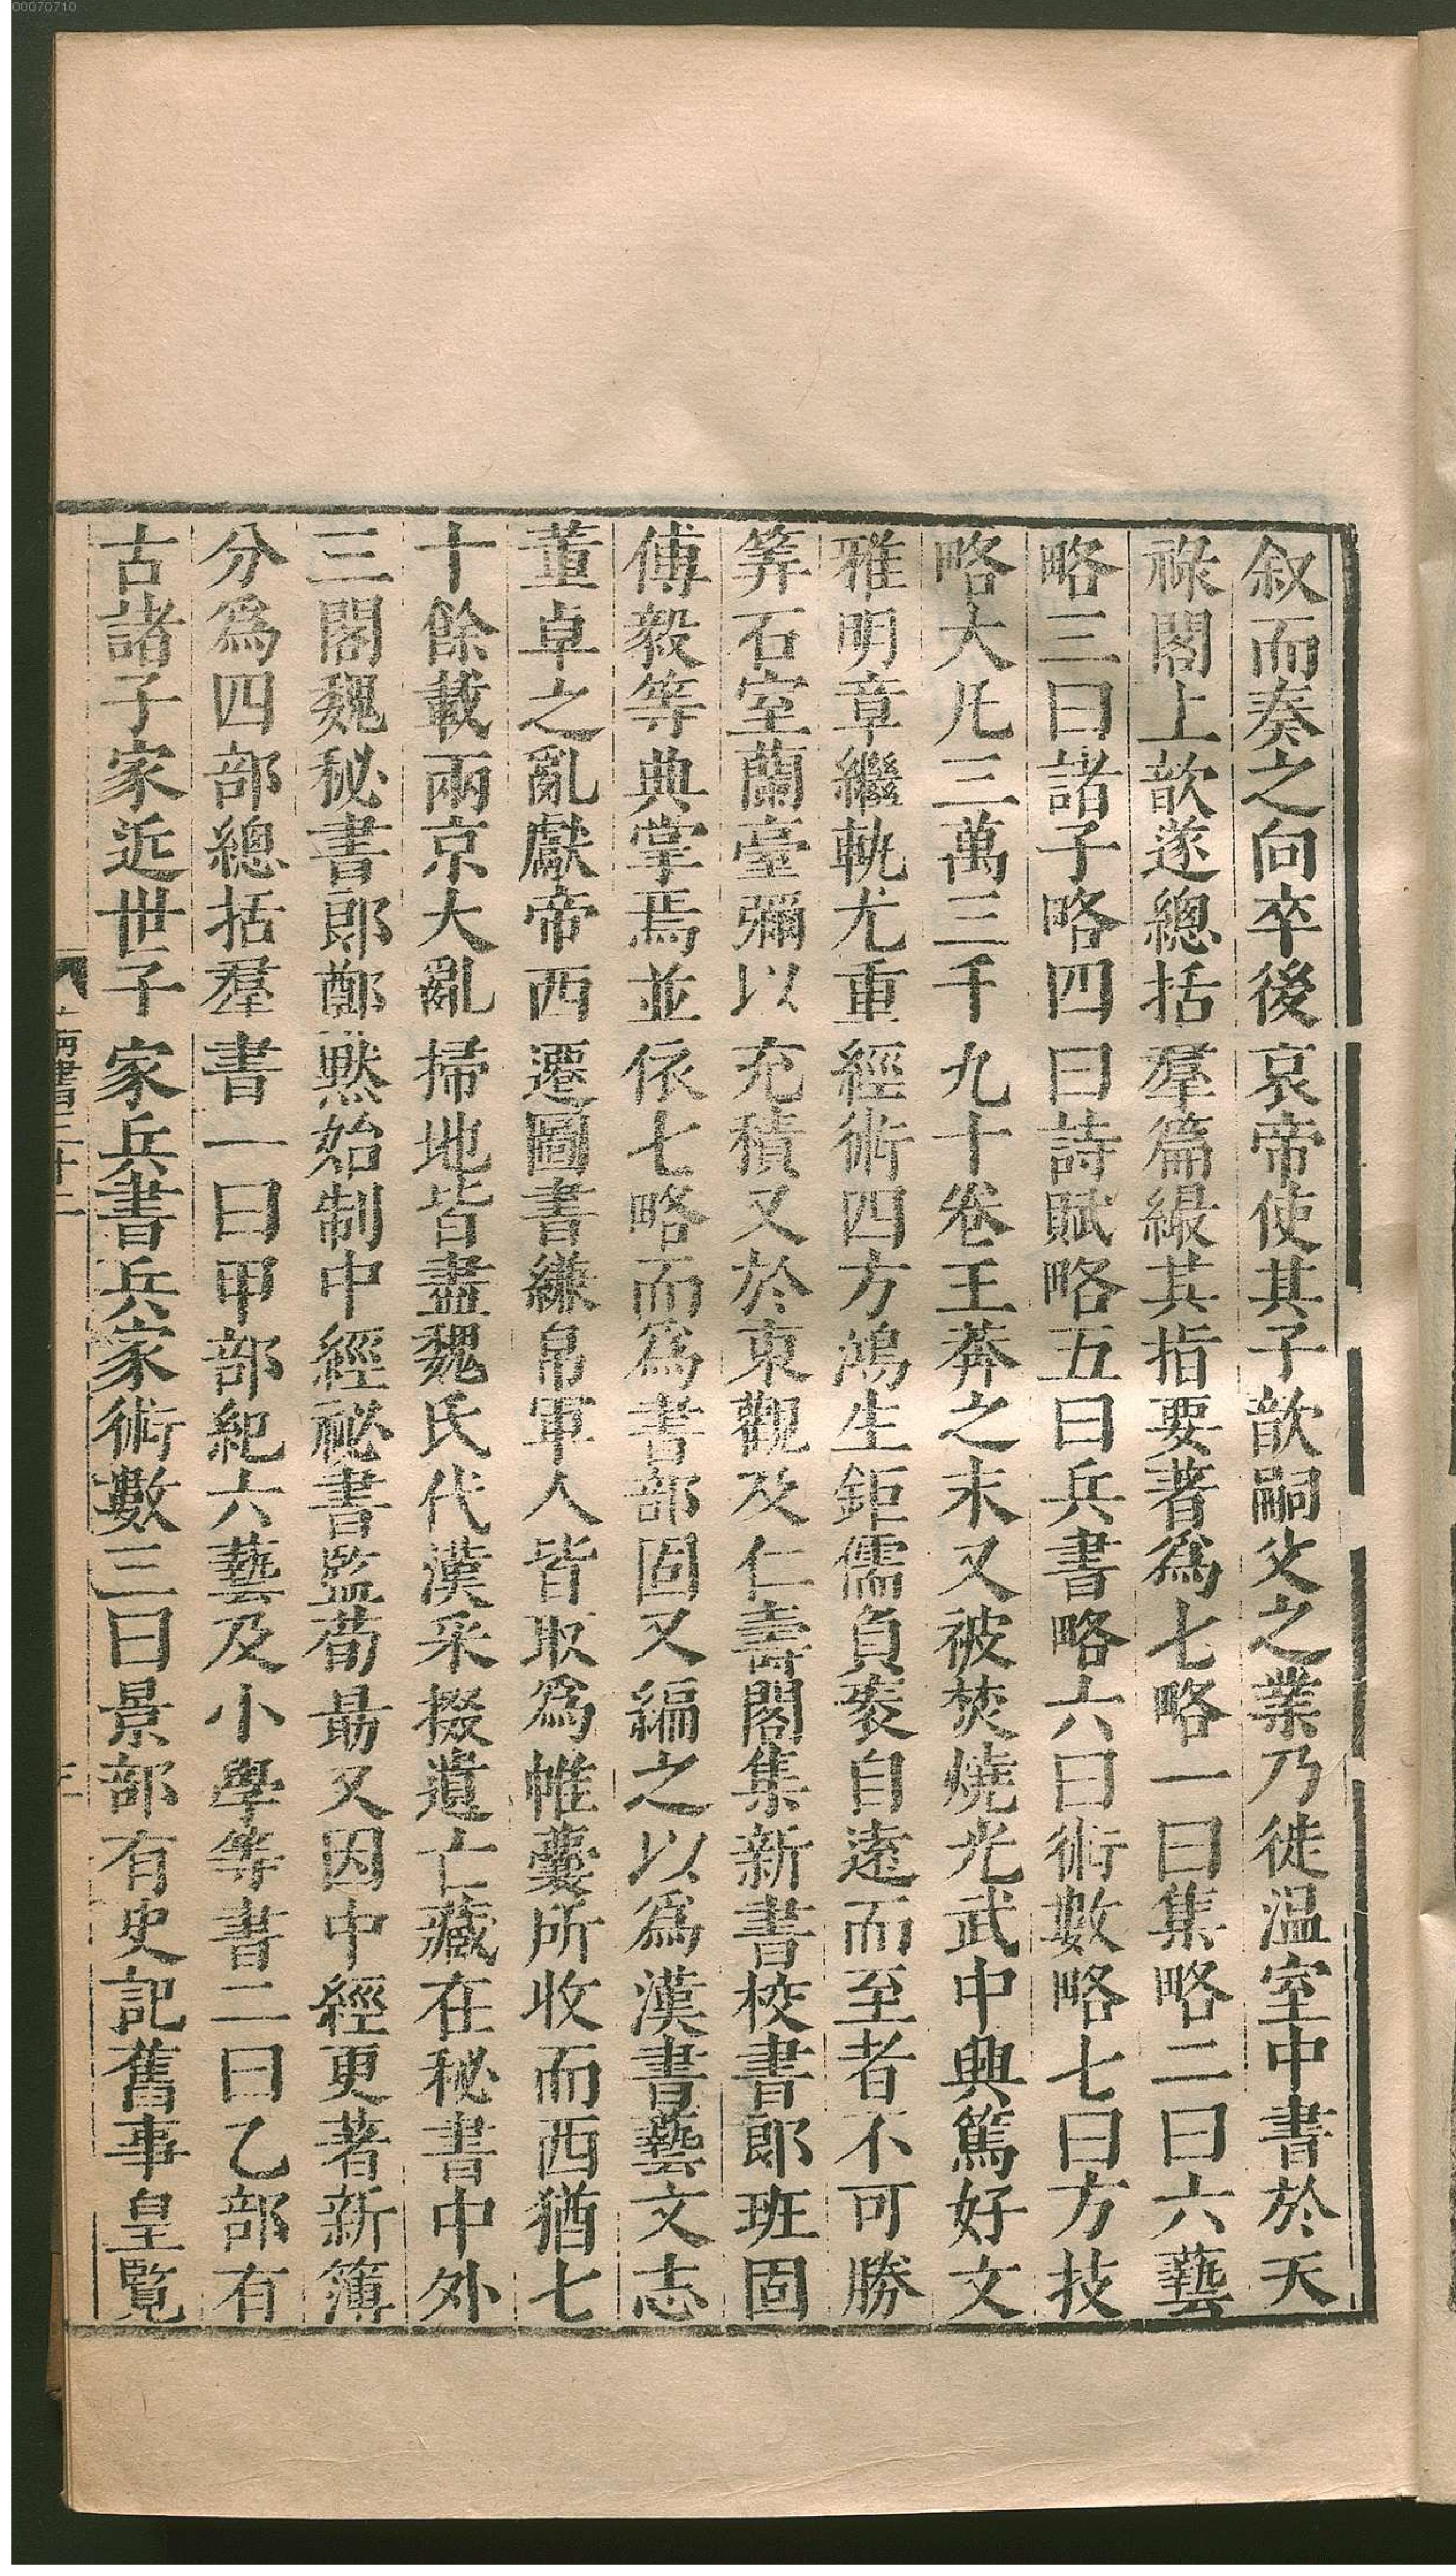 00070710
叙而奏之向卒後哀帝使其子歆嗣父之業乃徙温室中書於天
祿閣上歆遂總括羣篇繓其指要著爲七略一曰集略二曰六藝
略三曰諸子略四曰詩賦略五曰兵書略六曰術數略七曰方技
略大凡三萬三千九十卷王莽之末又被焚燒光武中興篤好文
雅明章繼軌尤重經術四方鴻生鉅儒負袠自遠而至者不可勝
筭石室蘭臺彌以充積又於東觀及仁壽閣集新書校書郎班固
傅毅等典掌焉並依七略而爲書部固又編之以爲漢書藝文志
董卓之亂獻帝西遷圖書縑帛軍人皆取爲帷囊所收而西猶七
十餘載兩京大亂掃地皆盡魏氏代漢采掇遺亡藏在秘書中外
三閣魏秘書郎鄭黙始制中經祕書監荀勗又因中經更著新簿
分爲四部總括羣書一曰甲部紀六藝及小學等書二曰乙部有
古諸子家近世子家兵書兵家術數三曰景部有史記舊事皇覧